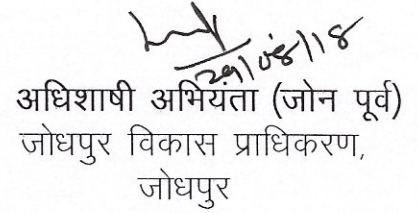 29/08/18
अधिशाषी अभियंता (जोन पूर्व)
जोधपुर विकास प्राधिकरण,
जोधपुर